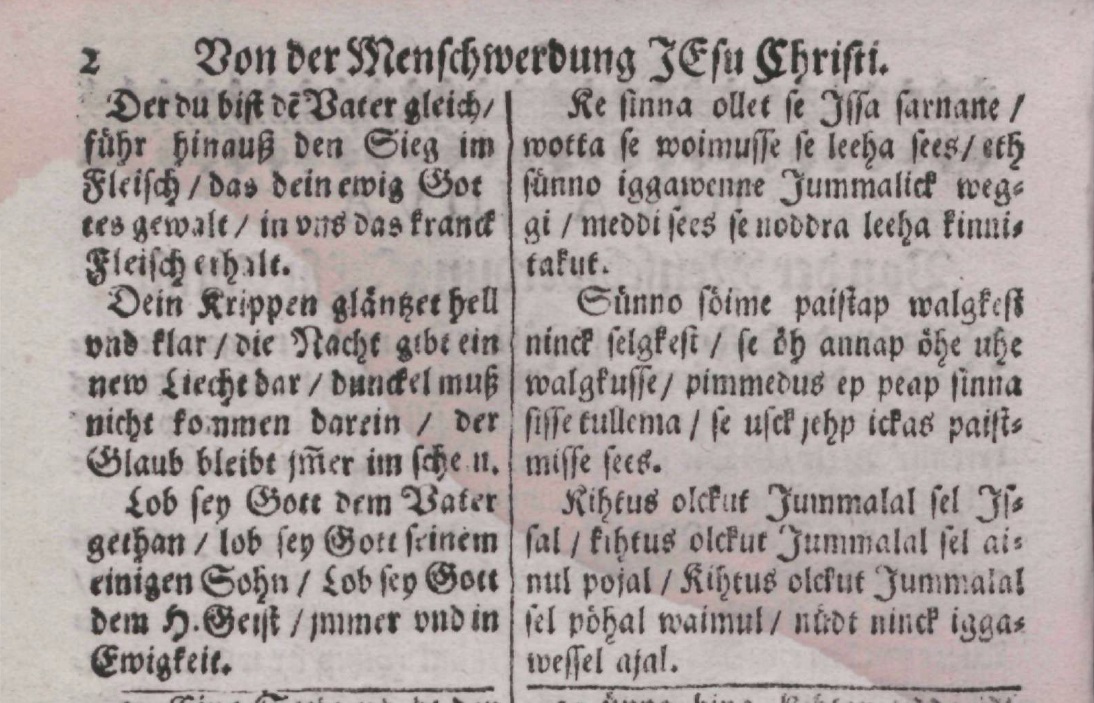 2 Von der Menschwerdung JEsu Christi.
Der du bist dē Vater gleich/
führ hinauß den Sieg im
Fleisch / das dein ewig Got
tes gewalt / in vns das kranck
Fleisch erhalt.
Dein Krippen gläntzet hell
vnd klar / die Nacht gibt ein
new Liecht dar / dunckel muß
nicht kommen darein / der
Glaub bleibt jm̄er im schein.
Lob sey Gott dem Vater
gethan / lob sey Gott seinem
einigen Sohn / Lob sey Gott
dem H. Geist / jmmer vnd in
Ewigkeit.
Ke sinna ollet se Issa sarnane /
wotta se woimusse se leeha sees/ eth
sünno iggawenne Jummalick weg-
gi / meddi sees se noddra leeha kinni-
takut.
Sünno söime paistap walgkest
ninck selgkest / se öh annap öhe uhe
walgkusse/ pimmedus ep peap sinna
sisse tullema / se usck jehp ickas paist-
misse sees.
Kihtus olckut Jummalal sel Is-
sal / kihtus olckut Jummalal sel ai-
nul pojal / Kihtus olckut Jummalal
sel pöhal waimul / nüdt ninck igga-
wessel ajal.